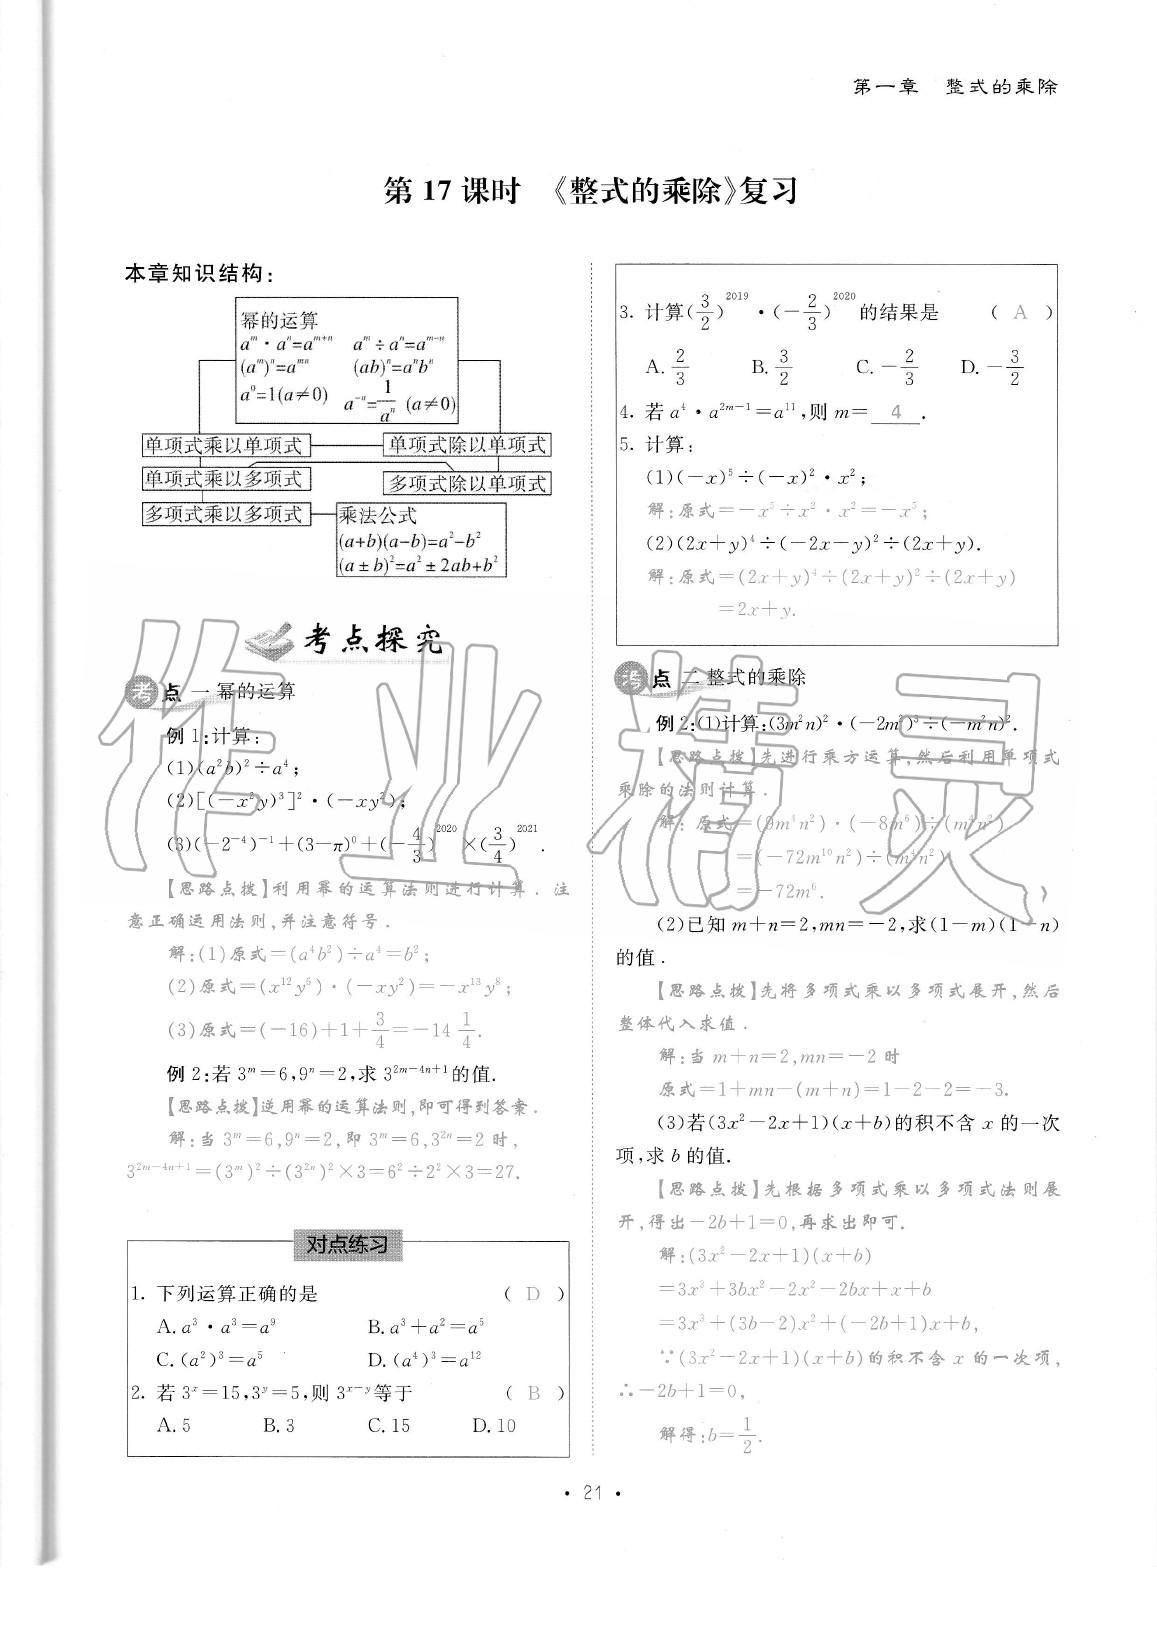 第一章 整式的乘除
第 17 课时 《整式的乘除》复习
本章知识结构:
幂的运算
aᵐ·aⁿ=aᵐ⁺ⁿ aᵐ÷aⁿ=aᵐ⁻ⁿ
(aᵐ)ⁿ=aᵐⁿ (ab)ⁿ=aⁿbⁿ
a⁰=1(a≠0) a⁻ⁿ=1/aⁿ (a≠0)
单项式乘以单项式 单项式除以单项式
单项式乘以多项式 多项式除以单项式
多项式乘以多项式 乘法公式
(a+b)(a-b)=a²-b²
(a±b)²=a²±2ab+b²
考点探究
考点一 幂的运算
例 1:计算:
(1)(a²b)²÷a⁴;
(2)[(-x²y)³]²·(-xy²);
(3)(-2⁻⁴)⁻¹+(3-π)⁰+(-4/3)²⁰²⁰×(3/4)²⁰²¹.
【思路点拨】利用幂的运算法则进行计算. 注
意正确运用法则,并注意符号.
解:(1)原式=(a⁴b²)÷a⁴=b²;
(2)原式=(x¹²y⁶)·(-xy²)=-x¹³y⁸;
(3)原式=(-16)+1+3/4=-14 1/4.
例 2:若 3ᵐ=6,9ⁿ=2,求 3²ᵐ⁻⁴ⁿ⁺¹的值.
【思路点拨】逆用幂的运算法则,即可得到答案.
解:当 3ᵐ=6,9ⁿ=2,即 3ᵐ=6,3²ⁿ=2 时,
3²ᵐ⁻⁴ⁿ⁺¹=(3ᵐ)²÷(3²ⁿ)²×3=6²÷2²×3=27.
对点练习
1. 下列运算正确的是 ( D )
A. a³·a³=a⁹ B. a³+a²=a⁵
C. (a²)³=a⁵ D. (a⁴)³=a¹²
2. 若 3ˣ=15,3ʸ=5,则 3ˣ⁻ʸ等于 ( B )
A. 5 B. 3 C. 15 D. 10
3. 计算(3/2)²⁰¹⁹·(-2/3)²⁰²⁰的结果是 ( A )
A. 2/3 B. 3/2 C. -2/3 D. -3/2
4. 若 a⁴·a²ᵐ⁻¹=a¹¹,则 m= 4 .
5. 计算:
(1)(-x)⁵÷(-x)²·x²;
解:原式=-x⁵÷x²·x²=-x⁵;
(2)(2x+y)⁴÷(-2x-y)²÷(2x+y).
解:原式=(2x+y)⁴÷(2x+y)²÷(2x+y)
=2x+y.
考点二 整式的乘除
例 2:(1)计算:(3m²n)²·(-2m²)³÷(-m²n)².
【思路点拨】先进行乘方运算,然后利用单项式
乘除的法则计算.
解: 原式=(9m⁴n²)·(-8m⁶)÷(m⁴n²)
=(-72m¹⁰n²)÷(m⁴n²)
=-72m⁶.
(2)已知 m+n=2,mn=-2,求(1-m)(1-n)
的值.
【思路点拨】先将多项式乘以多项式展开,然后
整体代入求值.
解:当 m+n=2,mn=-2 时
原式=1+mn-(m+n)=1-2-2=-3.
(3)若(3x²-2x+1)(x+b)的积不含 x 的一次
项,求 b 的值.
【思路点拨】先根据多项式乘以多项式法则展
开,得出-2b+1=0,再求出即可.
解:(3x²-2x+1)(x+b)
=3x³+3bx²-2x²-2bx+x+b
=3x³+(3b-2)x²+(-2b+1)x+b,
∵(3x²-2x+1)(x+b)的积不含 x 的一次项,
∴-2b+1=0,
解得:b=1/2.
·21·
作业精灵